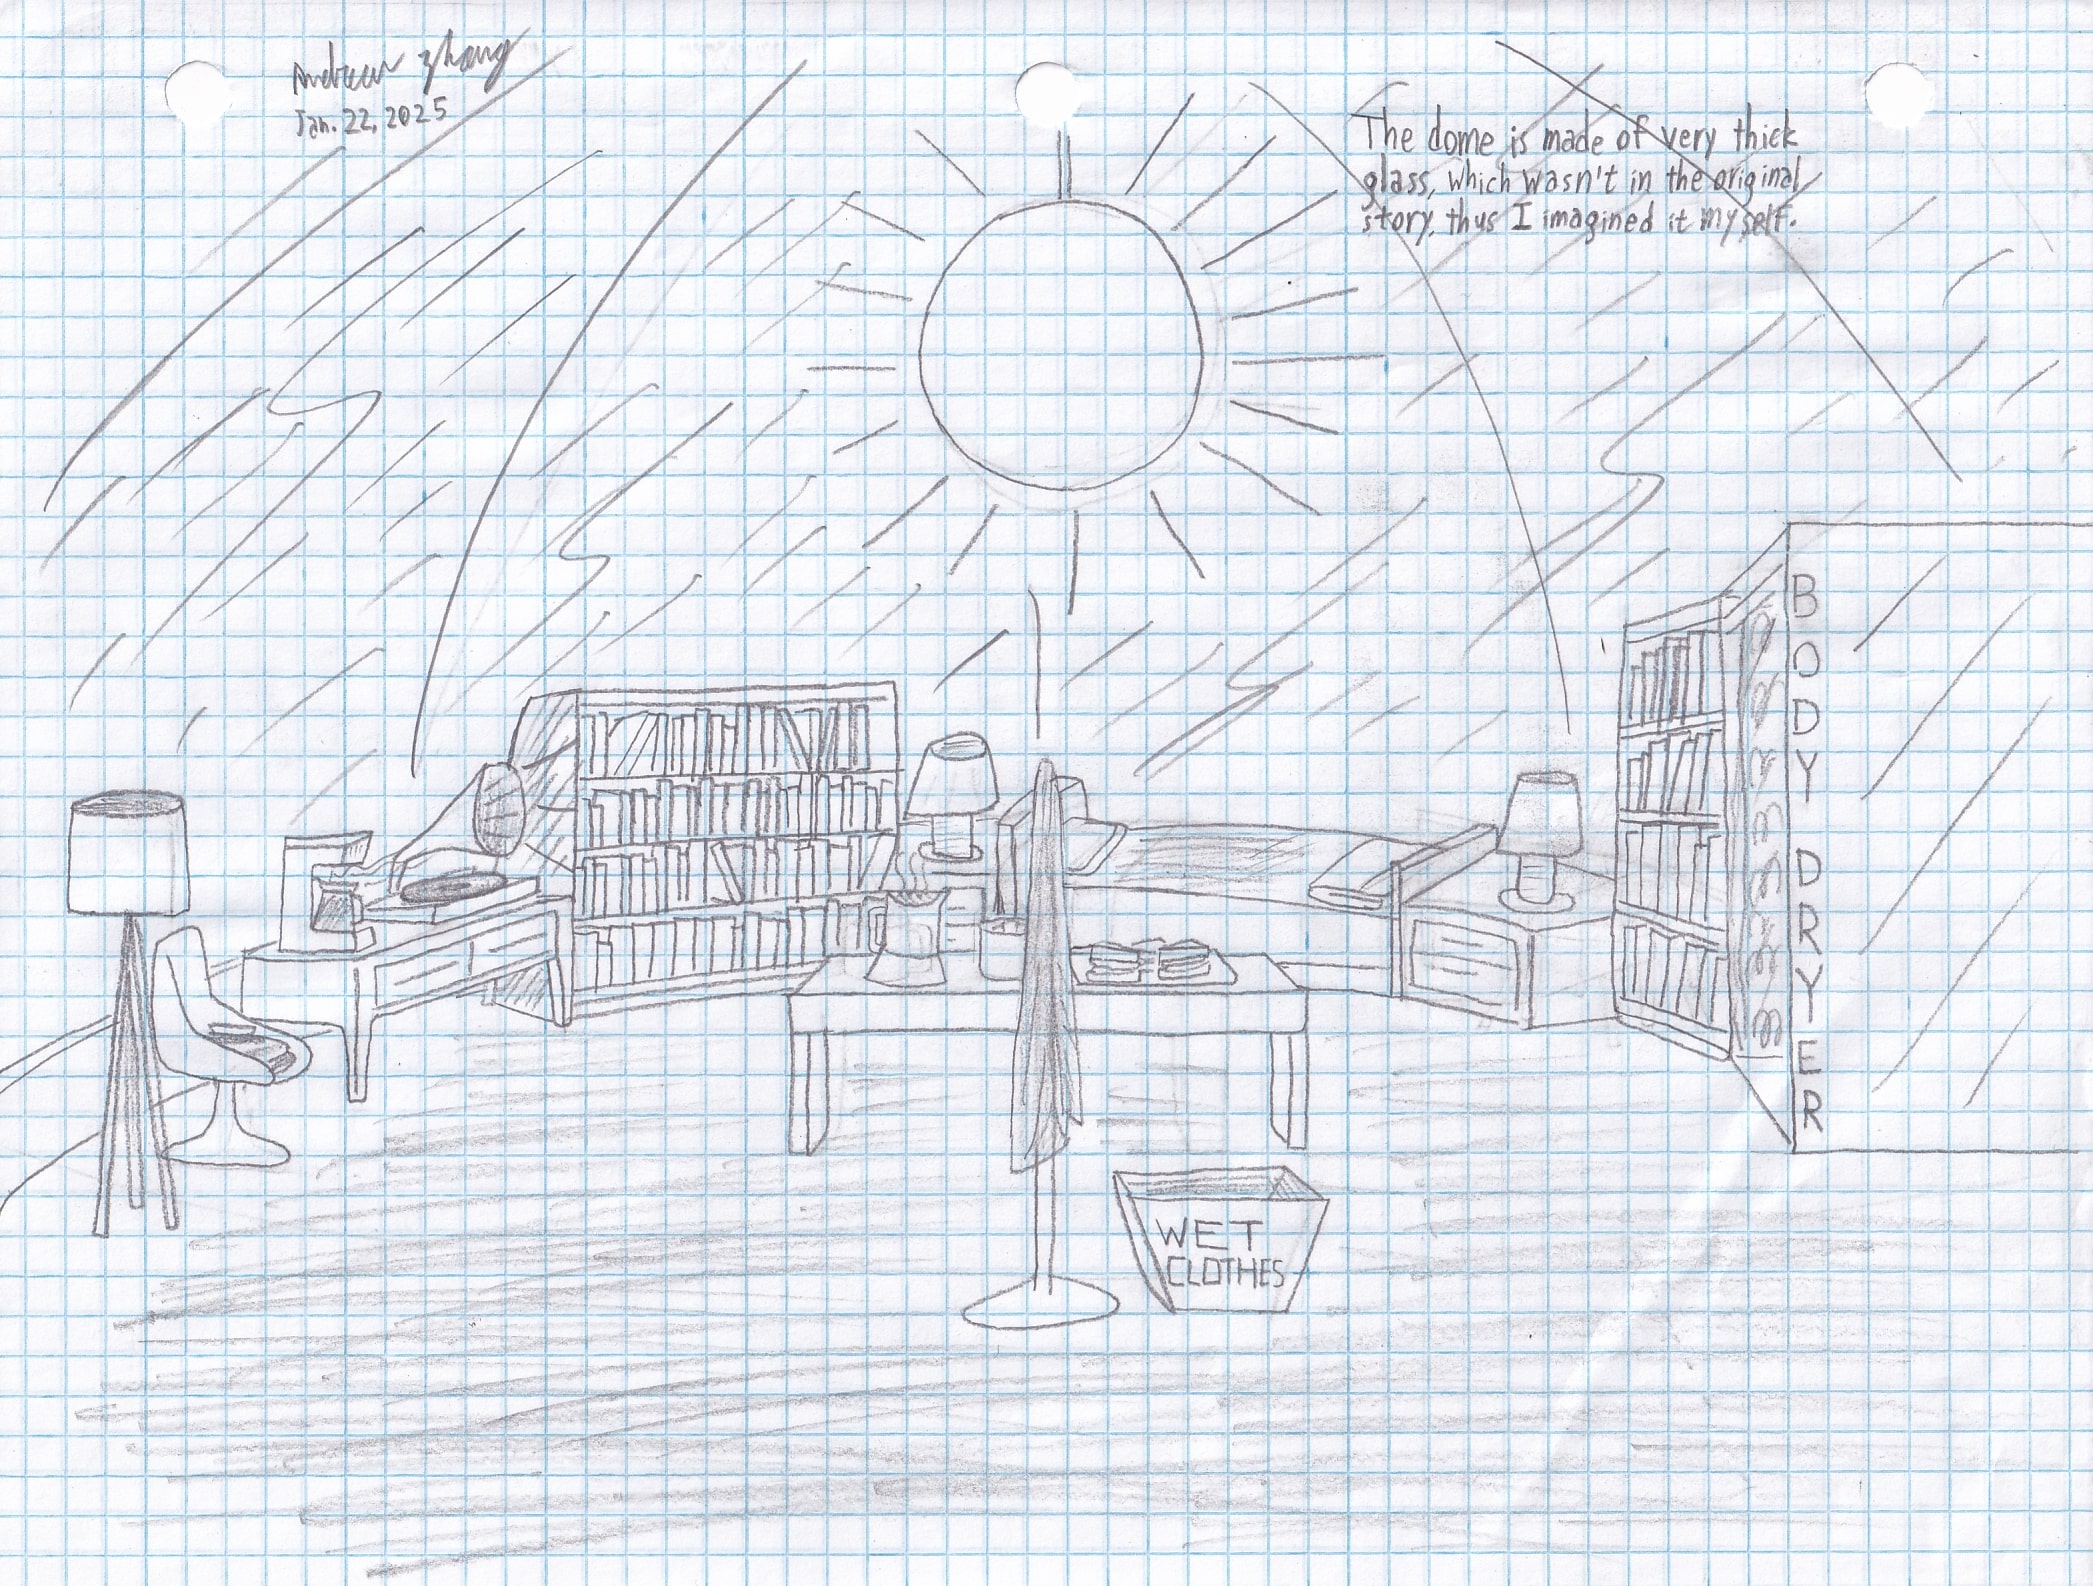 Andrew Zhang
Jan. 22, 2025
The dome is made of very thick
glass, which wasn't in the original
story, thus I imagined it myself.
BODY DRYER
WET
CLOTHES